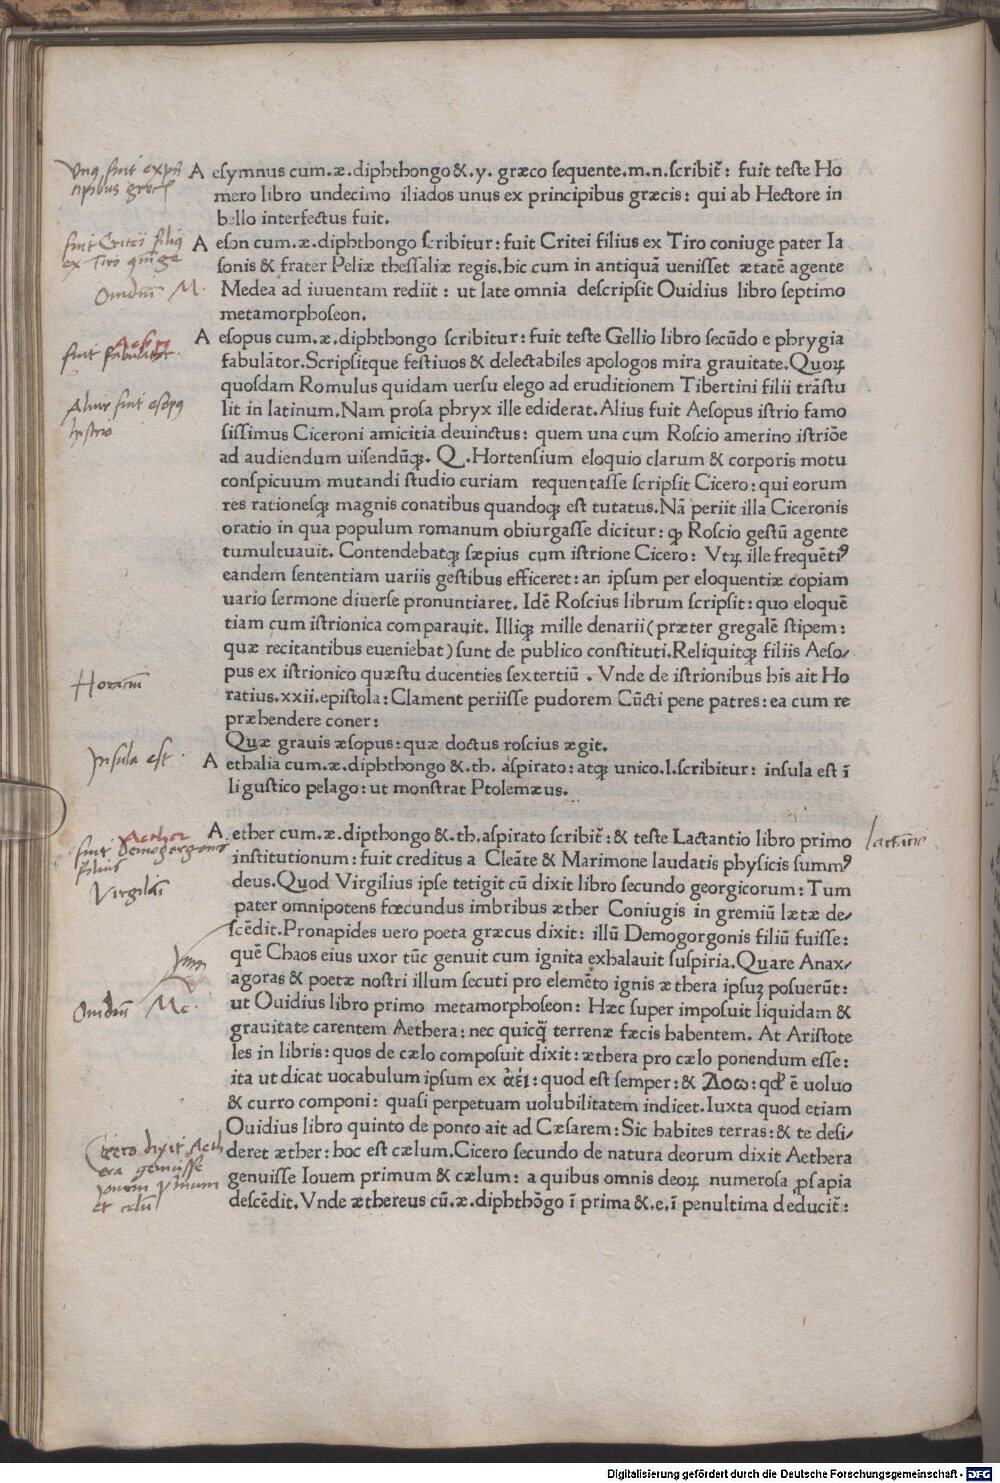 A esymnus cum.æ.diphthongo &.y. græco sequente.m.n.scribit̃: fuit teste Ho
mero libro undecimo iliados unus ex principibus græcis: qui ab Hectore in
bello interfectus fuit.
A eson cum.æ.diphthongo scribitur: fuit Critei filius ex Tiro coniuge pater Ia
sonis & frater Peliæ thessaliæ regis.hic cum in antiquā uenisset ætatē agente
Medea ad iuuentam rediit: ut late omnia descripsit Ouidius libro septimo
metamorphoseon.
A esopus cum.æ.diphthongo scribitur: fuit teste Gellio libro secūdo e phrygia
fabulator.Scripsitque festiuos & delectabiles apologos mira grauitate.Quoꝝ
quosdam Romulus quidam uersu elego ad eruditionem Tibertini filii trāstu
lit in latinum.Nam prosa phryx ille ediderat.Alius fuit Aesopus istrio famo
sissimus Ciceroni amicitia deuinctus: quem una cum Roscio amerino istriōe
ad audiendum uisendūqꝫ. Q.Hortensium eloquio clarum & corporis motu
conspicuum mutandi studio curiam requentasse scripsit Cicero: qui eorum
res rationesqꝫ magnis conatibus quandoqꝫ est tutatus.Nā periit illa Ciceronis
oratio in qua populum romanum obiurgasse dicitur: qꝫ Roscio gestū agente
tumultuauit. Contendebatqꝫ sæpius cum istrione Cicero: Vtꝝ ille frequētiꝰ
eandem sententiam uariis gestibus efficeret: an ipsum per eloquentiæ copiam
uario sermone diuerse pronuntiaret. Idē Roscius librum scripsit: quo eloquē
tiam cum istrionica comparauit. Illiqꝫ mille denarii(præter gregalē stipem:
quæ recitantibus eueniebat)sunt de publico constituti.Reliquitqꝫ filiis Aeso/
pus ex istrionico quæstu ducenties sextertiū. Vnde de istrionibus his ait Ho
ratius.xxii.epistola: Clament periisse pudorem Cūcti pene patres: ea cum re
præhendere coner:
Quæ grauis æsopus: quæ doctus roscius ægit.
A ethalia cum.æ.diphthongo &.th. aspirato: atqꝫ unico.l.scribitur: insula est ī
ligustico pelago: ut monstrat Ptolemæus.
A ether cum.æ.dipthongo &.th.aspirato scribit̃: & teste Lactantio libro primo
institutionum: fuit creditus a Cleāte & Marimone laudatis physicis summꝰ
deus.Quod Virgilius ipse tetigit cū dixit libro secundo georgicorum: Tum
pater omnipotens fœcundus imbribus æther Coniugis in gremiū lætæ de/
scēdit.Pronapides uero poeta græcus dixit: illū Demogorgonis filiū fuisse:
quē Chaos eius uxor tūc genuit cum ignita exhalauit suspiria.Quare Anax/
agoras & poetæ nostri illum secuti pro elemēto ignis æthera ipsuꝫ posuerūt:
ut Ouidius libro primo metamorphoseon: Hæc super imposuit liquidam &
grauitate carentem Aethera: nec quicq̃ terrenæ fæcis habentem. At Aristote
les in libris: quos de cælo composuit dixit: æthera pro cælo ponendum esse:
ita ut dicat uocabulum ipsum ex ἀεί: quod est semper: & Δοω: qđ ē uoluo
& curro componi: quasi perpetuam uolubilitatem indicet.Iuxta quod etiam
Ouidius libro quinto de ponto ait ad Cæsarem: Sic habites terras: & te desi/
deret æther: hoc est cælum.Cicero secundo de natura deorum dixit Aethera
genuisse Iouem primum & cælum: a quibus omnis deoꝝ numerosa ꝓsapia
descēdit.Vnde æthereus cū.æ.diphthōgo ī prima &.e.ī penultima deducit̃:
fuit Critei filiꝰ
Ouidiū M.
Aesop
fuit fabulator.
Alius fuit esopꝰ
histrio
Horatiū
Insula est
Aether
fuit Demogorgonis
filius
Virgiliū
Ouidiū Me.
Cicero dixit Aeth
era genuisse
Iouem primum
et celū
Digitalisierung gefördert durch die Deutsche Forschungsgemeinschaft - DFG